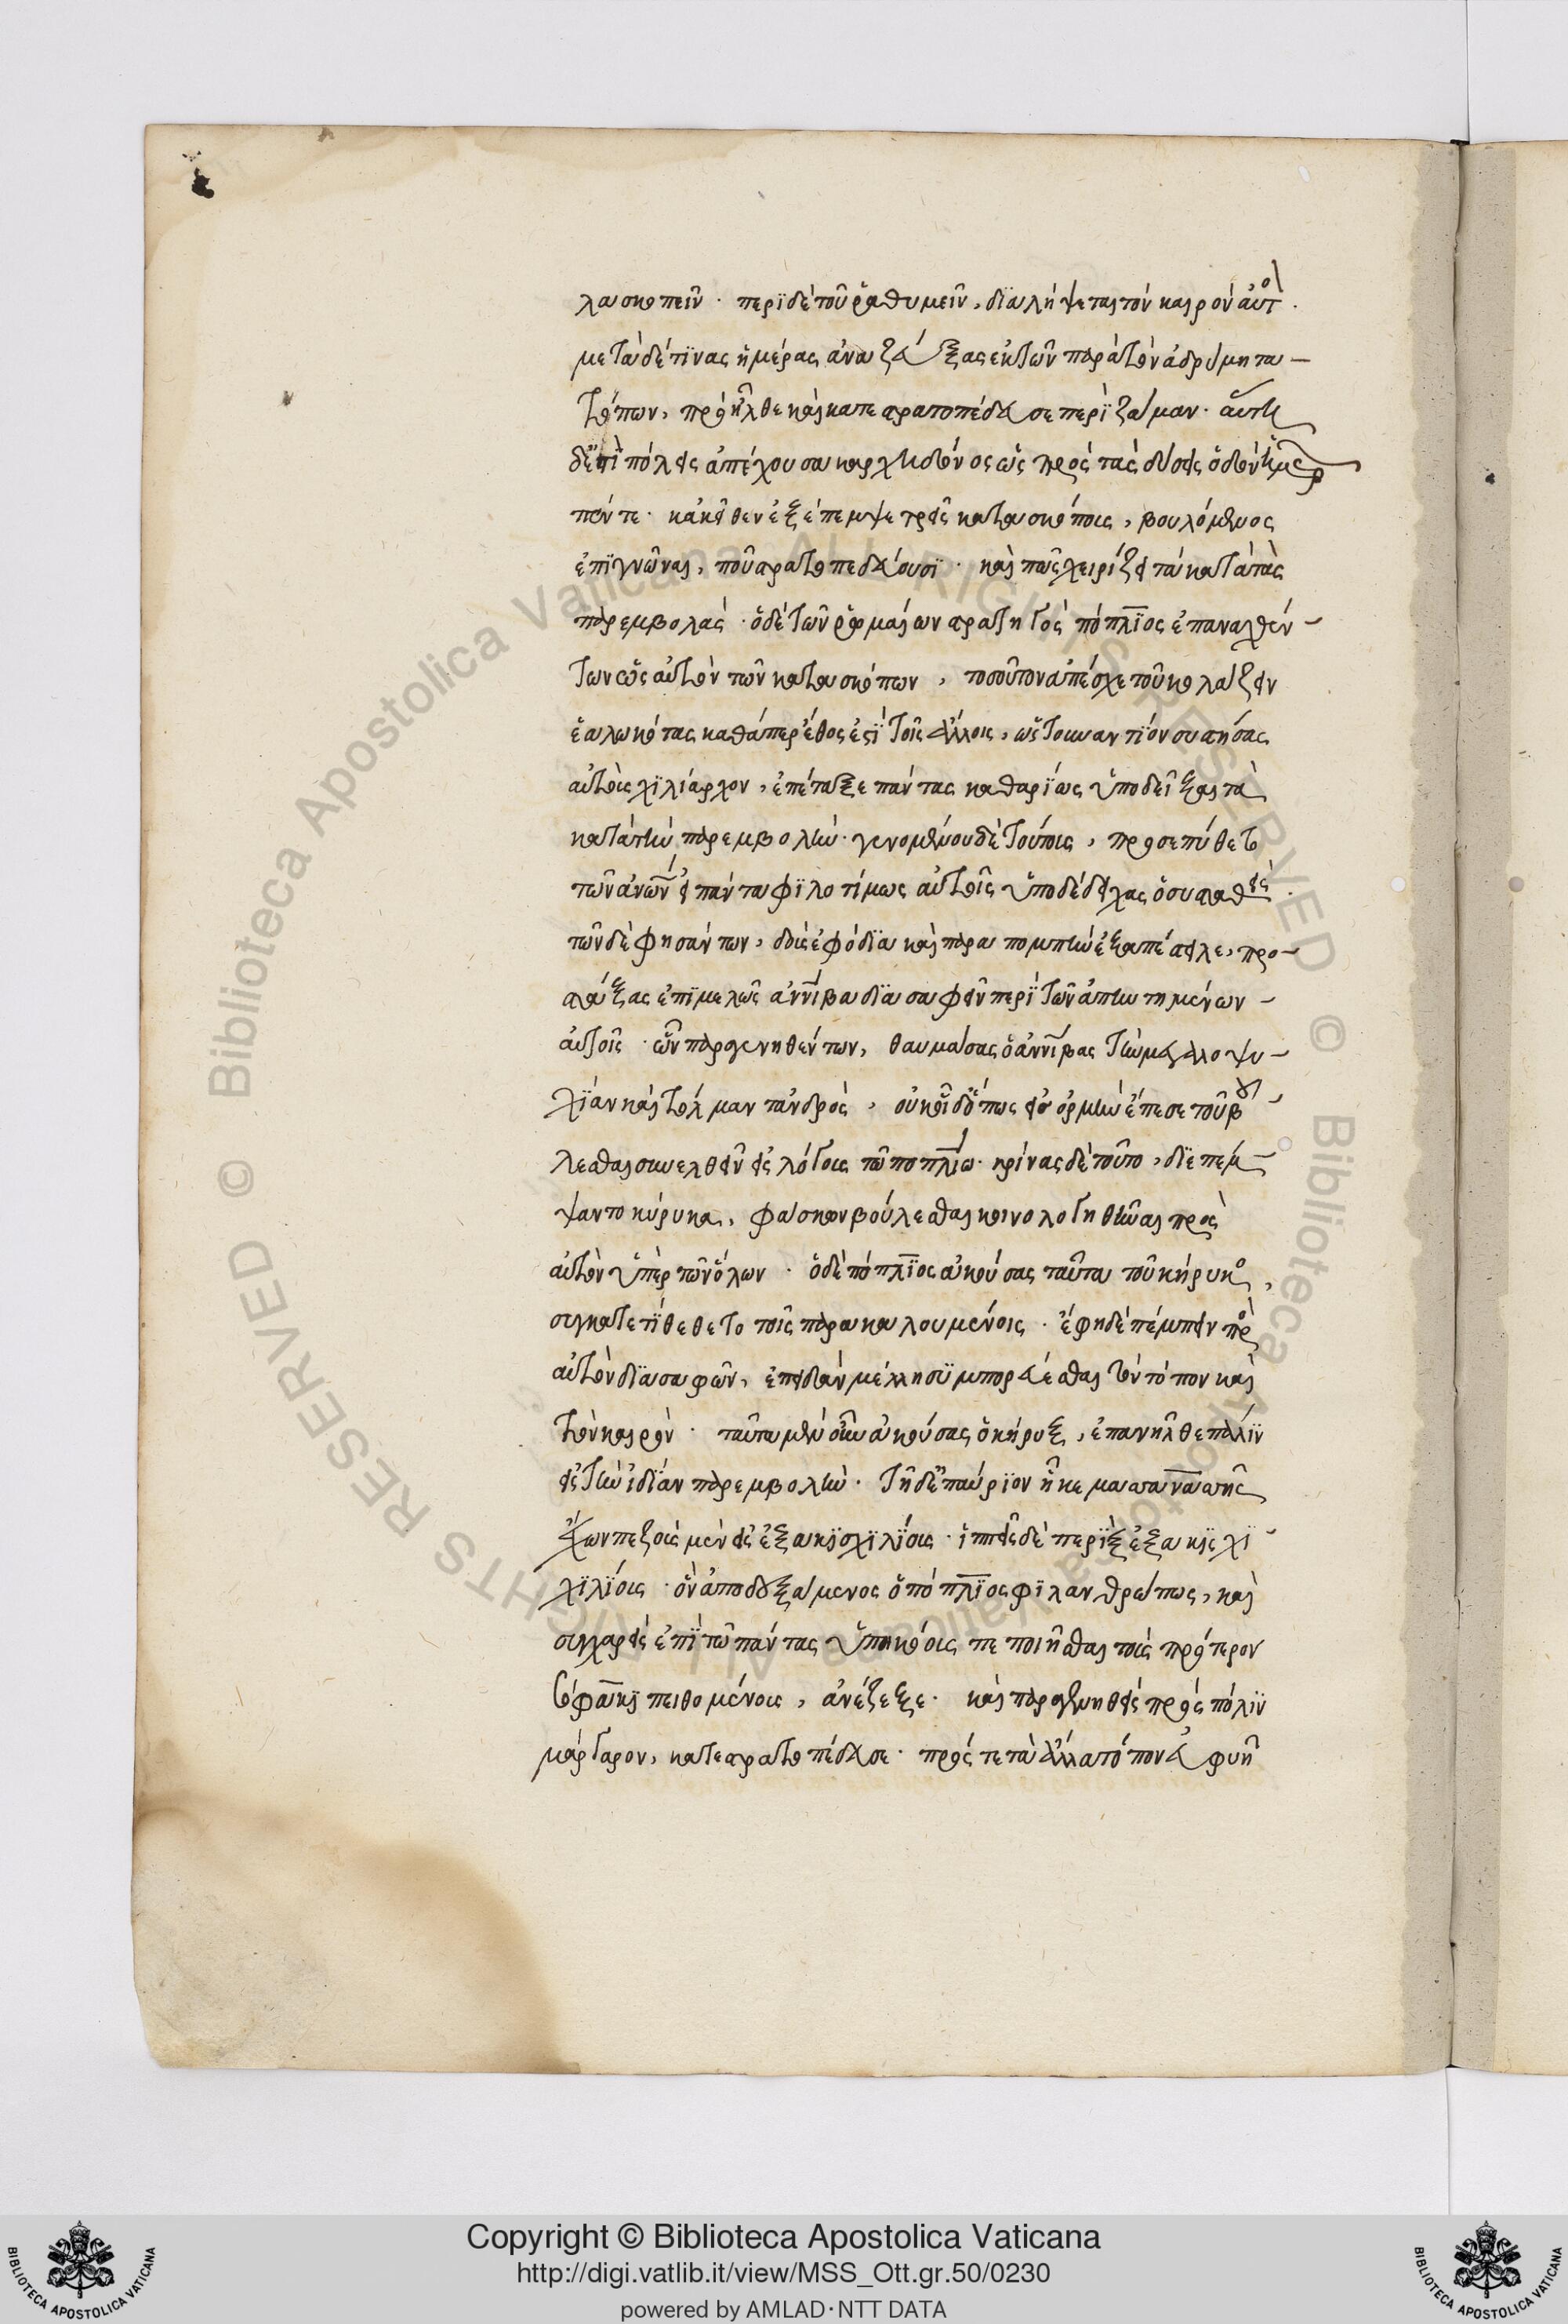 λα σκοπεῖν · περὶ δὲ τοῦ ῥαθυμεῖν, διαλήψεται τὸν καιρὸν αὐτός.
μετὰ δέ τινας ἡμέρας ἀναζεύξας ἐκ τῶν παρὰ τὸν ἀδρύμητα
τόπων, προῆλθε καὶ κατεστρατοπέδευσε περὶ ζάμαν · αὕτη
δ' ἐστὶ πόλις ἀπέχουσα καρχηδόνος ὡς πρὸς τὰς δύσεις ὁδὸν ἡμερῶν
πέντε · κἀκεῖθεν ἐξέπεμψε τρεῖς κατασκόπους, βουλόμενος
ἐπιγνῶναι, ποῦ στρατοπεδεύουσι · καὶ πῶς χειρίζει τὰ κατὰ τὰς
παρεμβολάς · ὁ δὲ τῶν ῥωμαίων στρατηγὸς πόπλιος ἐπαναχθέν
των ὡς αὐτὸν τῶν κατασκόπων, τοσοῦτον ἀπέσχε τοῦ κολάζειν
ἑαλωκότας καθάπερ ἔθος ἐστὶ τοῖς ἄλλοις, ὥστε τοὐναντίον συστήσας
αὐτοῖς χιλίαρχον, ἐπέταξε πάντας καθαρίως ὑποδεῖξαι τὰ
κατὰ τὴν παρεμβολήν · γενομένου δὲ τούτου, προσεπύθετο
τῶν ἀνθρώπων εἰ πάντα φιλοτίμως αὐτοῖς ὑποδέδειχεν ὁ συσταθείς.
τῶν δὲ φησάντων, δοὺς ἐφόδια καὶ παραπομπὴν ἐξαπέστειλε, προ
στάξας ἐπιμελῶς ἀννίβᾳ διασαφεῖν περὶ τῶν ἀπηντημένων
αὐτοῖς · ὧν παραγενηθέντων, θαυμάσας ὁ ἀννίβας τὴν μεγαλοψυ
χίαν καὶ τόλμαν τἀνδρός, οὐκ οἶδ' ὅπως εἰς ὁρμὴν ἔπεσε τοῦ βού
λεσθαι συνελθεῖν εἰς λόγους τῷ ποπλίῳ · κρίνας δὲ τοῦτο, διεπέμ
ψατο κήρυκα, φάσκων βούλεσθαι κοινολογηθῆναι πρὸς
αὐτὸν ὑπὲρ τῶν ὅλων · ὁ δὲ πόπλιος ἀκούσας ταῦτα τοῦ κήρυκος,
συγκατετίθεθετο τοῖς παρακαλουμένοις · ἔφη δὲ πέμπειν πρὸς
αὐτὸν διασαφῶν, ἐπειδὰν μέλλῃ συμπορεύεσθαι τὸν τόπον καὶ
τὸν καιρόν · ταῦτα μὲν οὖν ἀκούσας ὁ κήρυξ, ἐπανῆλθε πάλιν
εἰς τὴν ἰδίαν παρεμβολήν · τῇ δ' ἐπαύριον ἧκε μασσανάσσης
ἔχων πεζοὺς μὲν εἰς ἑξακισχιλίους · ἱππεῖς δὲ περὶ ξ ἑξακισχι
χιλίους · ὃν ἀποδεξάμενος ὁ πόπλιος φιλανθρώπως, καὶ
συγχαρεὶς ἐπὶ τῷ πάντας ὑπηκόους πεποιῆσθαι τοὺς πρότερον
σόφακι πειθομένους, ἀνέζευξε · καὶ παραγενηθεὶς πρὸς πόλιν
μάργαρον, κατεστρατοπέδευσε · πρός τε τἆλλα τόπον εὐφυῆ